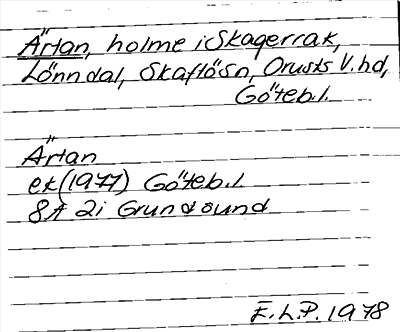 Ärtan, holme i Skagerrak,
Lönndal, Skaftö sn, Orusts V. hd,
Göteb.l.
Ärtan
ek (1977) Göteb.l.
8A 2i Grundsund
E.L.P. 1978